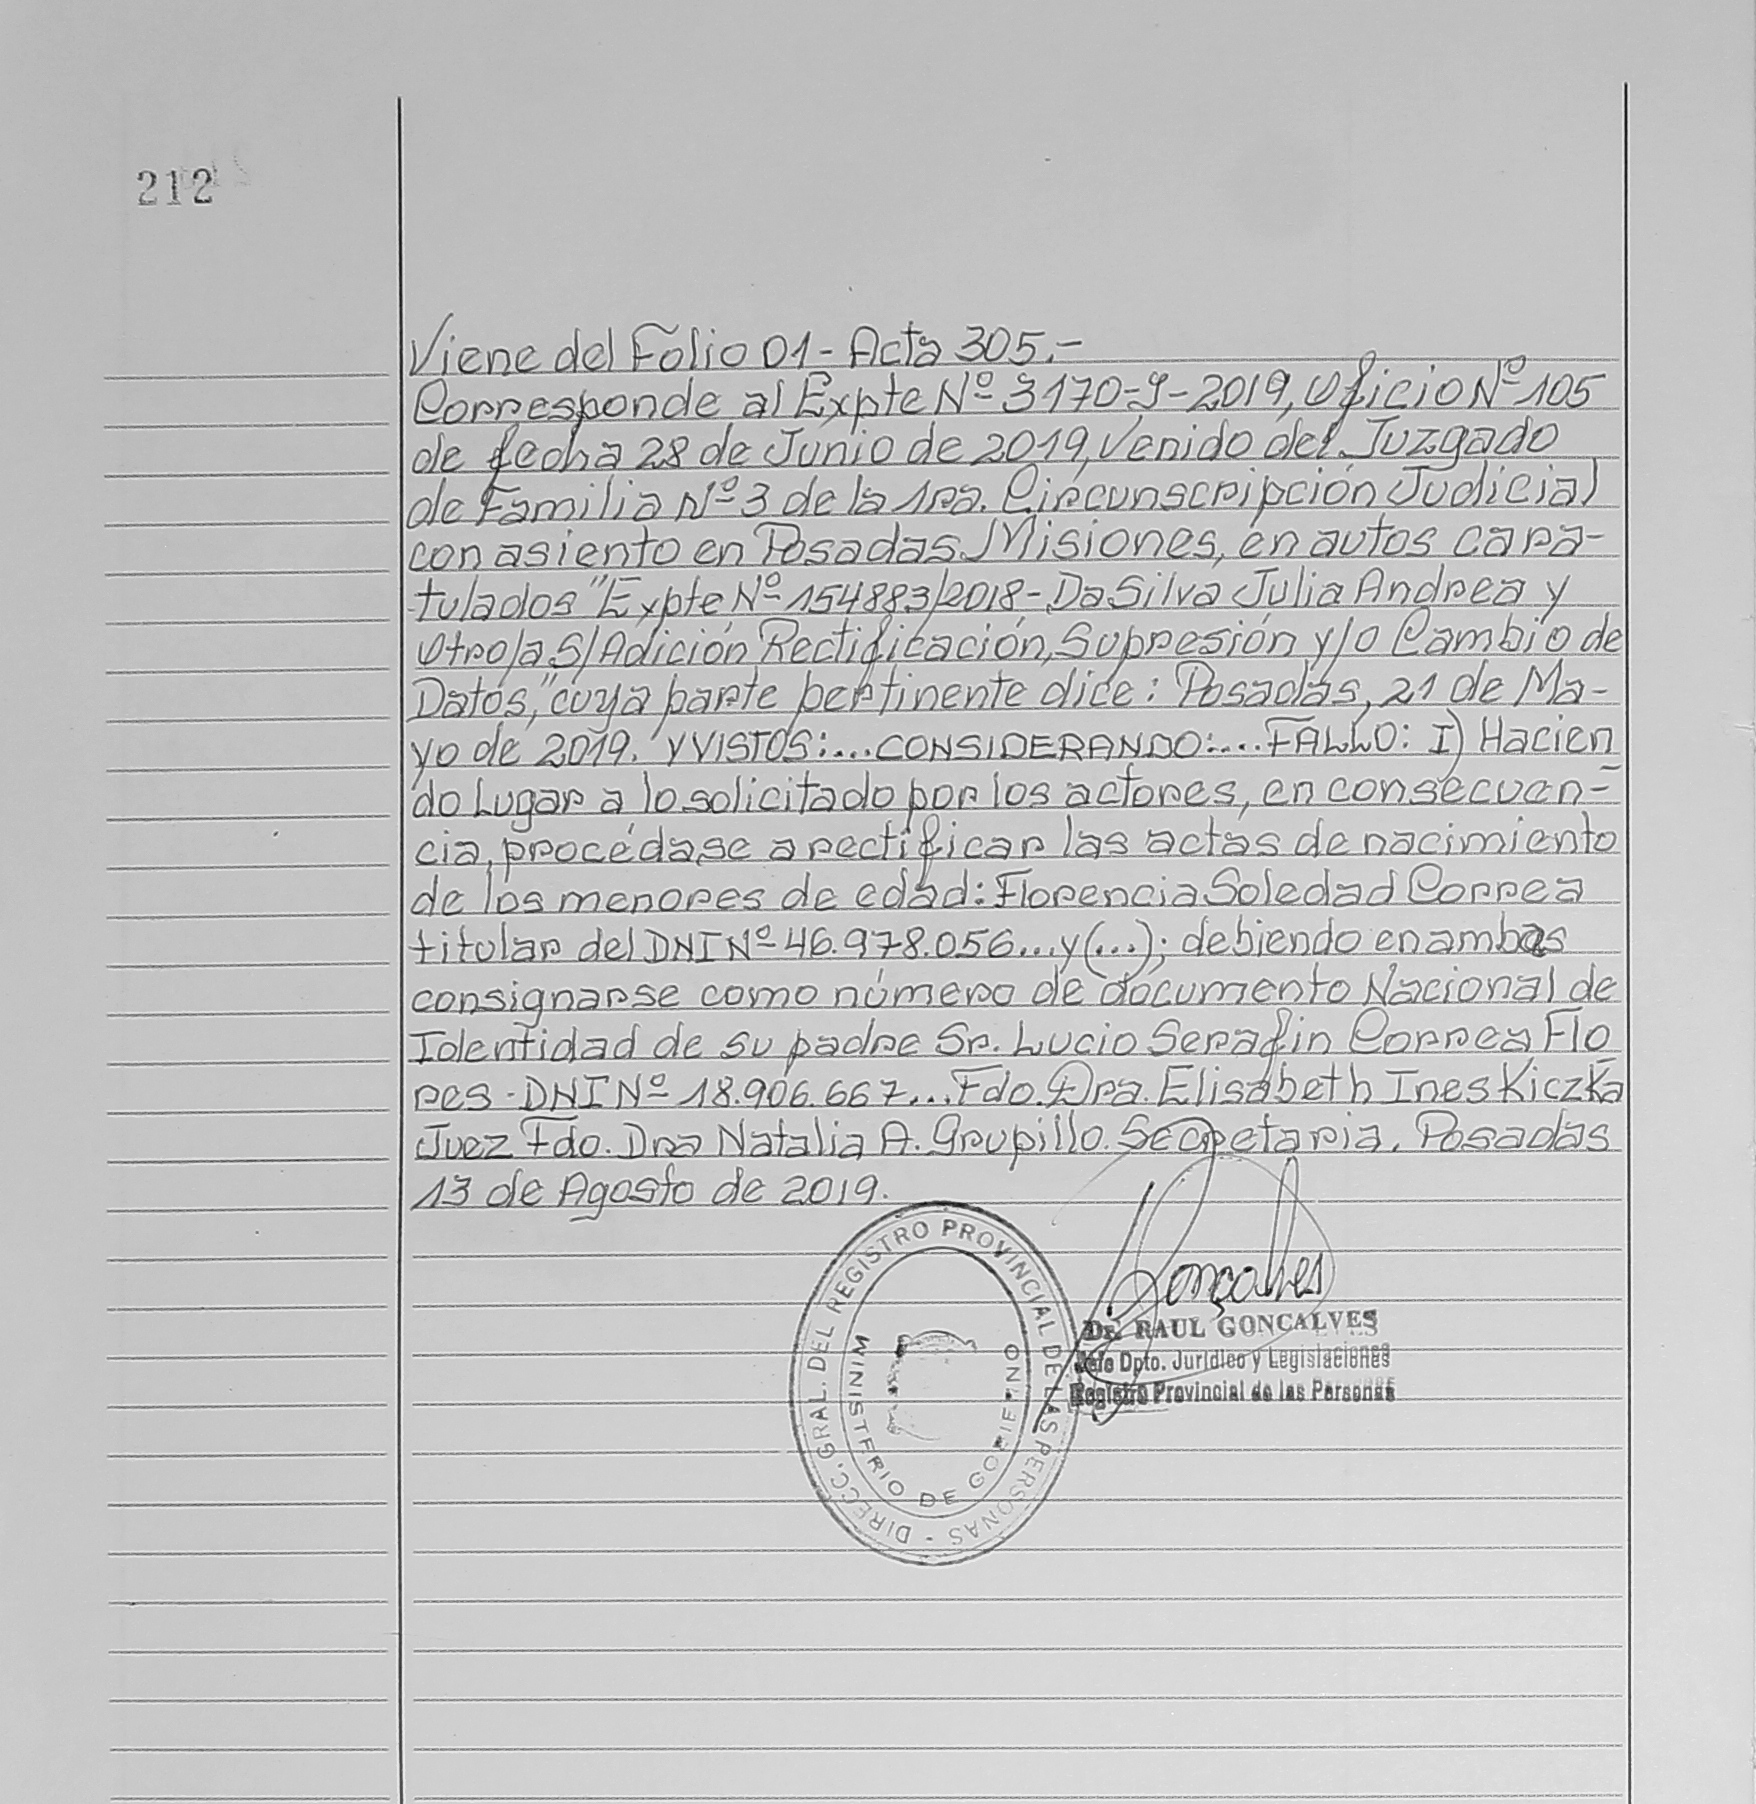 212
Viene del Folio 01 - Acta 305.-
Corresponde al Expte Nº 3170-J-2019, Oficio Nº 105
de fecha 28 de Junio de 2019, Venido del Juzgado
de Familia Nº 3 de la 1ra. Circunscripción Judicial
con asiento en Posadas Misiones, en autos cara-
tulados "Expte Nº 154883/2018 - Da Silva Julia Andrea y
Otro/a S/Adición, Rectificación, Supresión y/o Cambio de
Datos," cuya parte pertinente dice: Posadas, 21 de Ma-
yo de 2019. Y VISTOS:...CONSIDERANDO:....FALLO: I) Hacien
do Lugar a lo solicitado por los actores, en consecuen-
cia, procédase a rectificar las actas de nacimiento
de los menores de edad: Florencia Soledad Correa
titular del DNI Nº 46.978.056...y (...); debiendo en ambas
consignarse como número de documento Nacional de
Identidad de su padre Sr. Lucio Serafin Correa, Flo
res - DNI Nº 18.906.667... Fdo. Dra. Elisabeth Ines Kiczka
Juez Fdo. Dra Natalia A. Grupillo. Secretaria. Posadas
13 de Agosto de 2019.
DIRECC. GRAL. DEL REGISTRO PROVINCIAL DE LAS PERSONAS -
MINISTERIO DE GOBIERNO
Goncalves
Dr. RAUL GONCALVES
Jefe Dpto. Jurídico y Legislaciones
Registro Provincial de las Personas